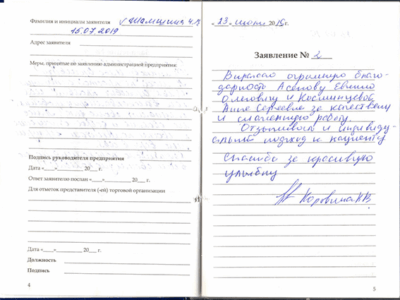 Фамилия и инициалы заявителя
15.07.2019
Адрес заявителя
Меры, принятые по заявлению администрацией предприятия
Подпись руководителя предприятия
Дата «___» ________ 20___ г.
Ответ заявителю послан «___» ________ 20___ г.
Для отметок представителя (-ей) торговой организации
Дата «___» ________ 20___ г.
Должность
Подпись
4
«23» июня 2019 г.
Заявление № 2
Выражаю огромную благо-
дарность Евгению
Олеговичу и
Анне Сергеевне за качественную
и слаженную работу.
Отзывчивый и индивиду-
альный подход к пациенту
Спасибо за красивую
улыбку
5